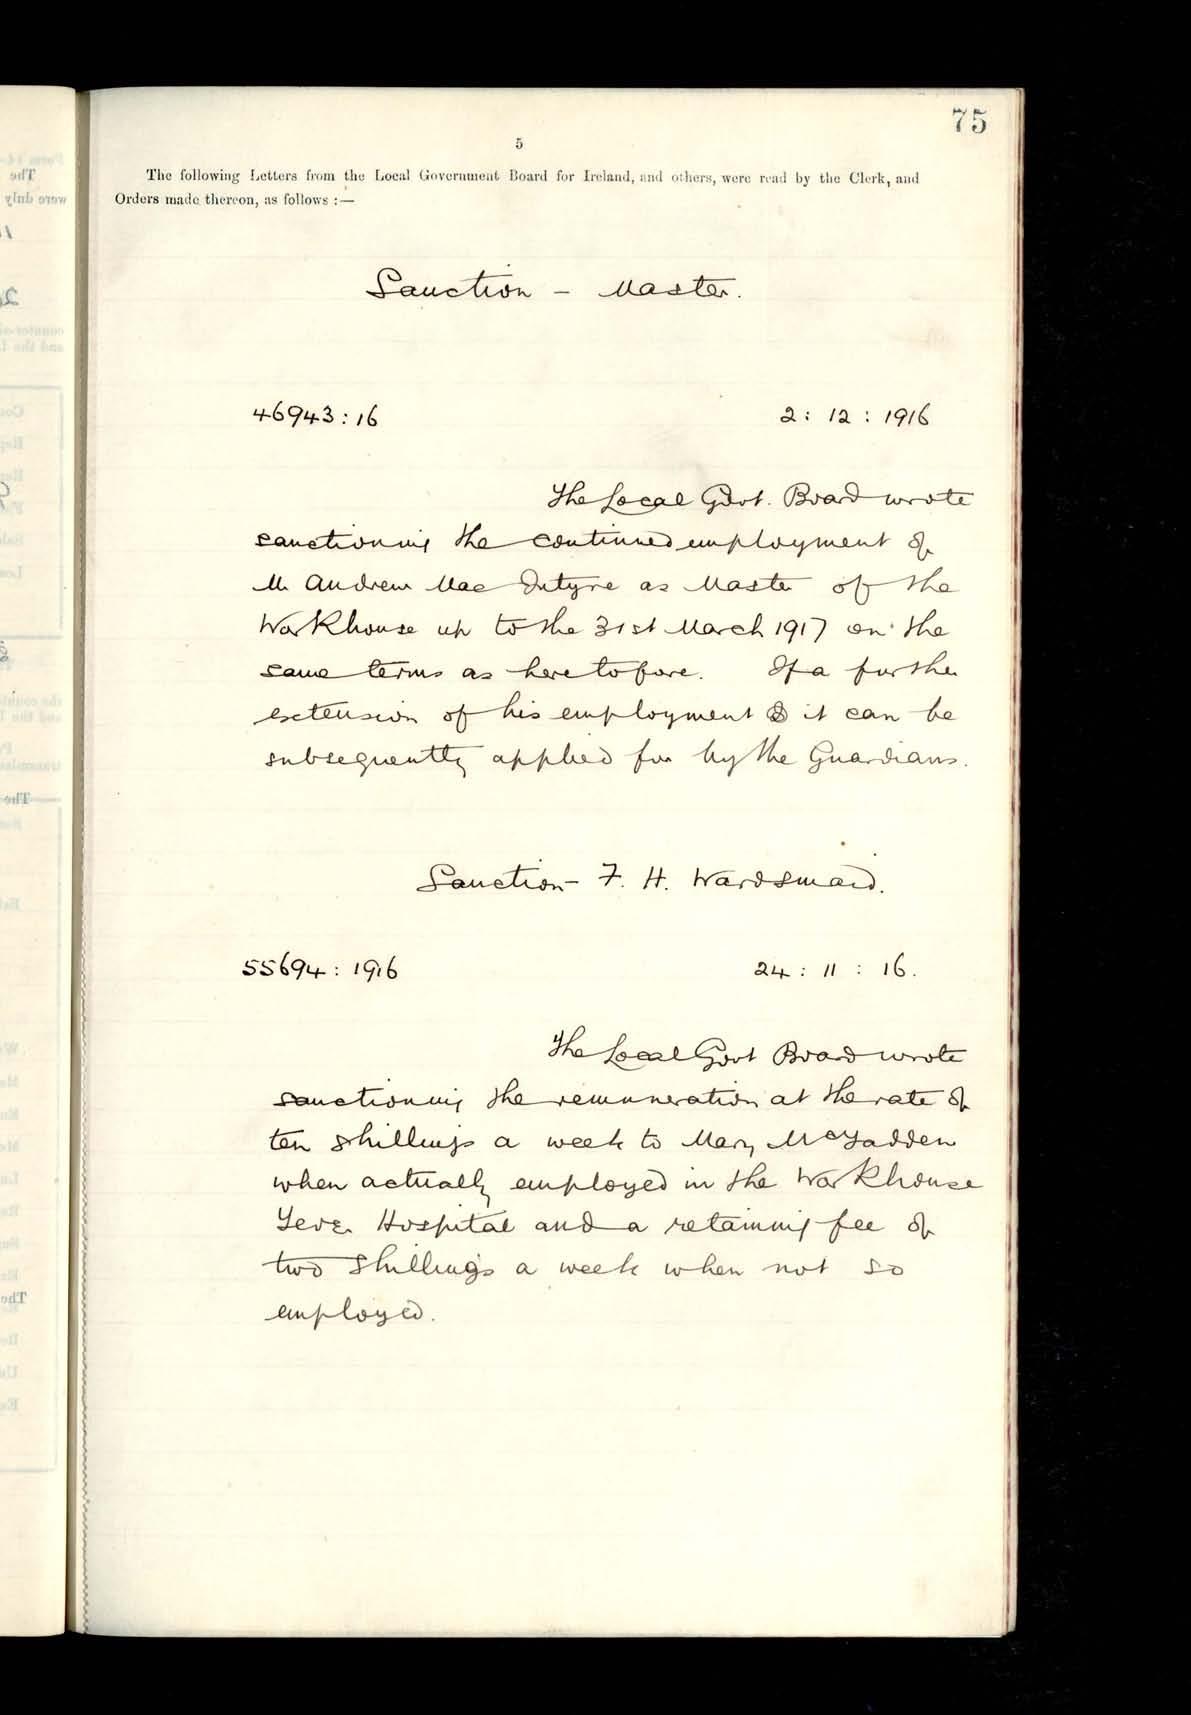 75
5
The following Letters from the Local Government Board for Ireland, and others, were read by the Clerk, and
Orders made thereon, as follows :—
Sanction - Master.
46943:16 2: 12: 1916
The Local Govt. Board wrote
sanctioning the continued employment of
Mr Andrew Mac Intyre as Master of the
Workhouse up to the 31st March 1917 on the
same terms as heretofore. If a further
extension of his employment it can be
subsequently applied for by the Guardians.
Sanction - F. H. Wardsmaid.
55694: 1916 24: 11: 16.
The Local Govt Board wrote
sanctioning the remuneration at the rate of
ten shillings a week to Mary McFadden
when actually employed in the Workhouse
Fever Hospital and a retaining fee of
two shillings a week when not so
employed.